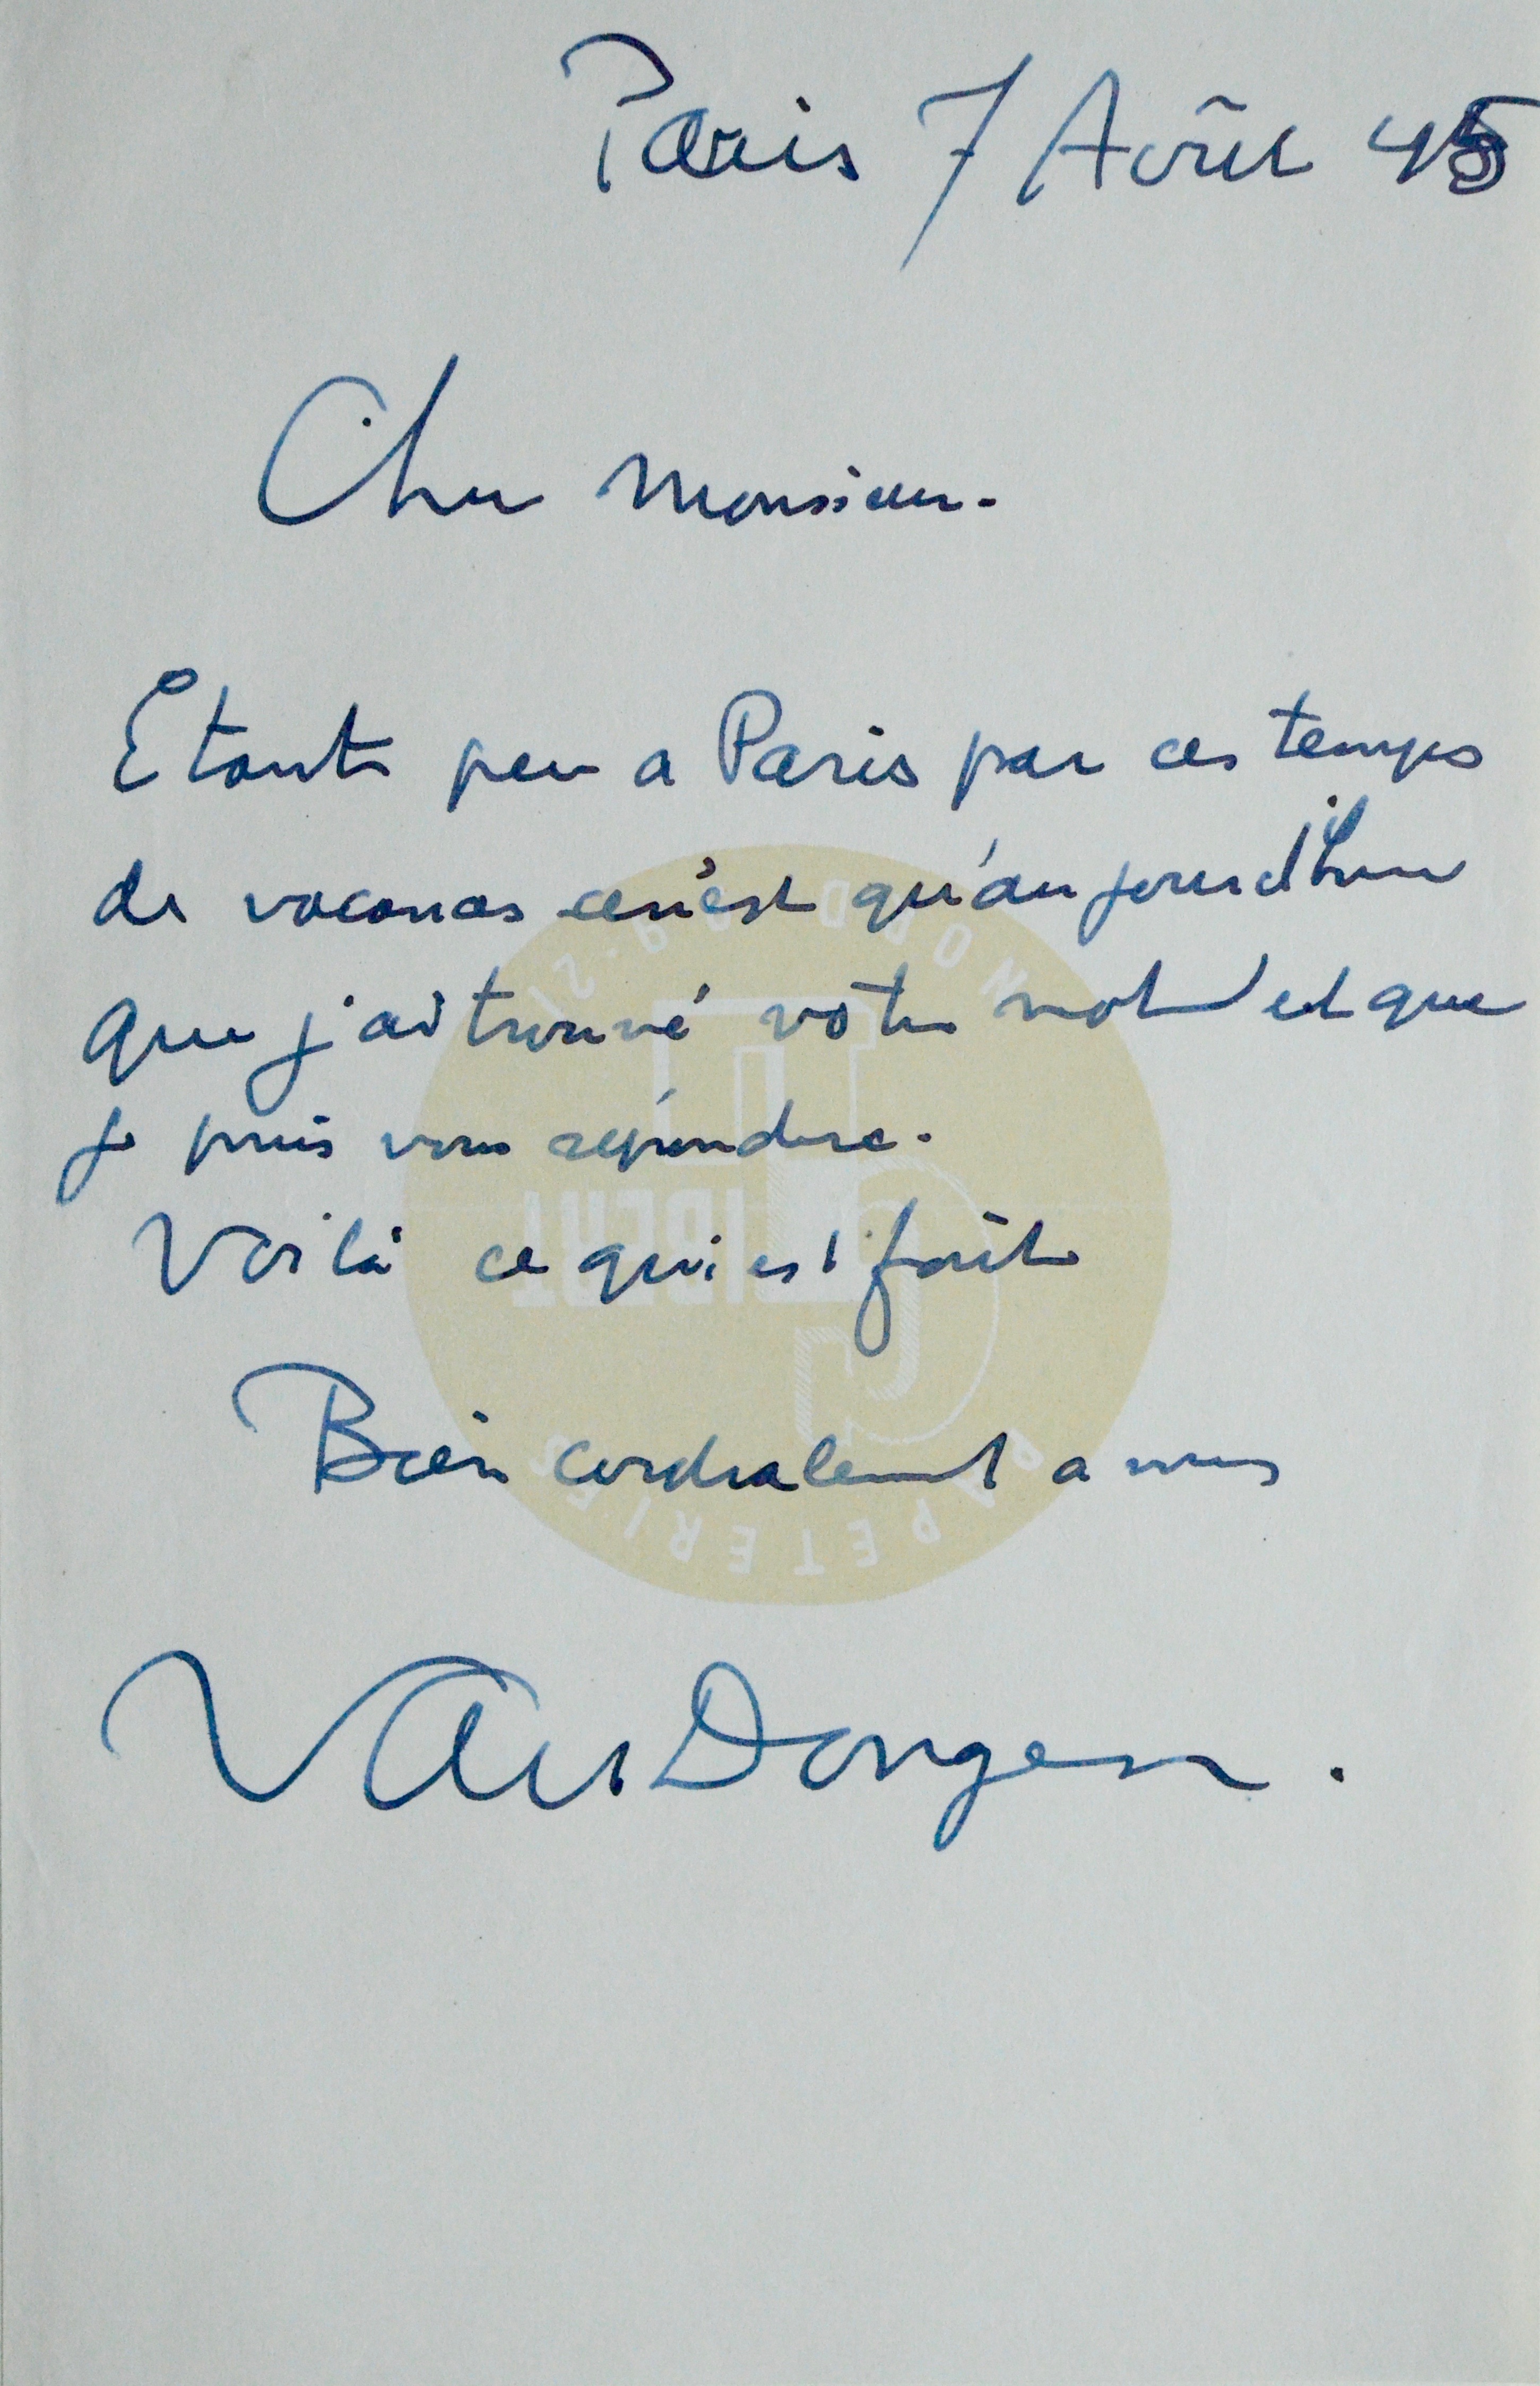 Paris 7 Août 45
Cher Monsieur.
Etant peu a Paris par ces temps
de vacances ce n'est qu'aujourd'hui
que j'ai trouvé votre mot et que
je puis vous répondre.
Voilà ce qui est fait
Bien cordialement a vous
Van Dongen.
NORD
GIBERT
PAPETERIES